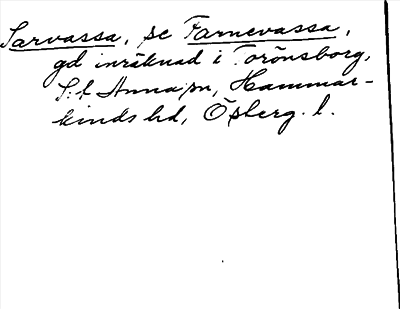 Sarvassa, se Farnevassa,
gd inräknad i Torönsborg,
S:t Anna sn, Hammar-
kinds hd, Österg. l.